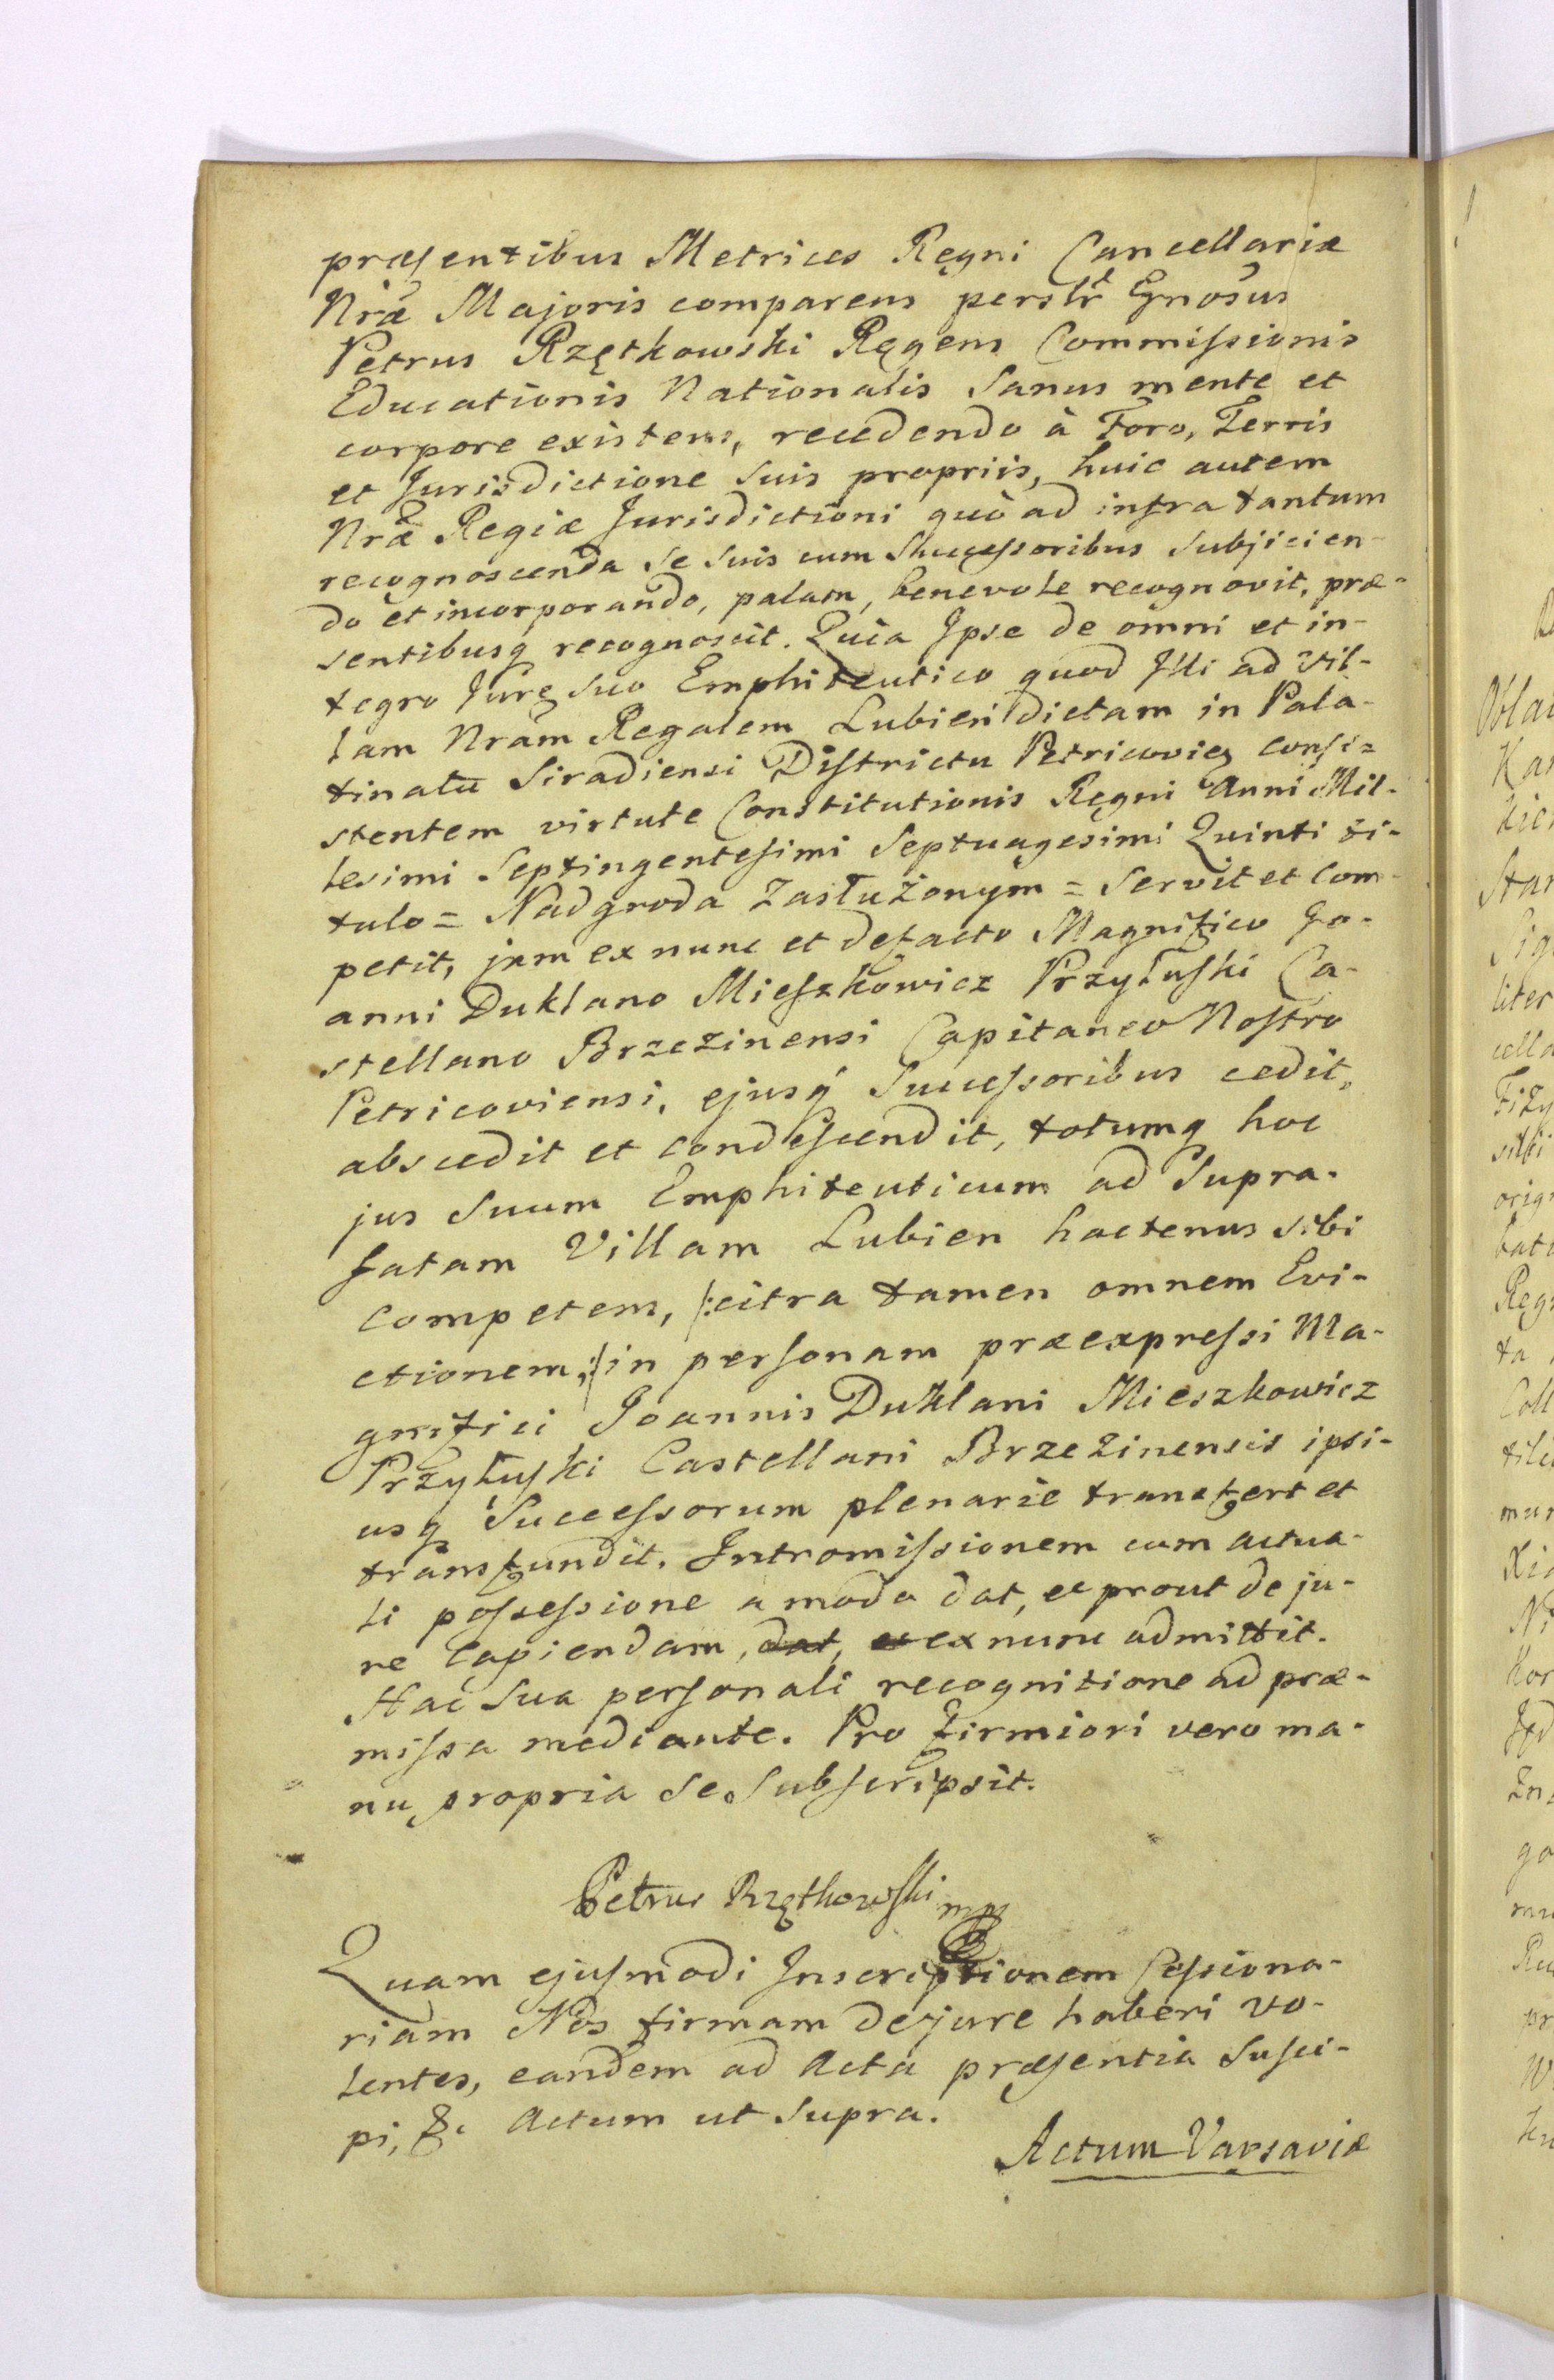 præsentibus Metrices Regni Cancellariæ
Nræ Majoris comparens perslr Gnosus
Petrus Rzętkowski Regens Commissionis
Educationis Nationalis Sanus mente et
corpore existens, recedendo à Foro, Terris
et Jurisdictione suis propriis, huic autem
Nræ Regiæ Jurisdictioni quò ad infra tantum
recognoscenda se suis cum Successoribus subjicien-
do et incorporando, palam, benevole recognovit, præ-
sentibusq recognoscit. Quia Ipse de omni et in-
tegro Jure suo Emphiteutico quod Illi ad Vil-
lam Nram Regalem Lubień dictam in Pala-
tinatu Siradiensi Districtu Petricovien consi=
stentem virtute Constitutionis Regni Anni Mil-
lesimi Septingentesimi Septuagesimi Quinti ti-
tulo = Nadgroda Zasłużonym = servit et com-
petit, jam ex nunc et defacto Magnifico Jo-
anni Duklano Mieszkowicz Przyłuski Ca-
stellano Brzezinensi Capitaneo Nostro
Petricoviensi, ejusq Successoribus cedit,
abscedit et condescendit, totumq hoc
jus suum Emphiteuticum ad Supra-
fatam Villam Lubien hactenus sibi
competens, /:citra tamen omnem Evi-
ctionem,:/ in personam præexpressi Ma-
gnifici Joannis Duklani Mieszkowicz
Przyłuski Castellani Brzezinensis ipsi-
usq Successorum plenarie transfert et
transfundit. Intromissionem cum actua-
li possessione a modo dat, et prout de ju-
re capiendam, dat, et ex nunc admittit.
Hac sua personali recognitione ad præ-
missa mediante. Pro firmiori vero ma-
nu propria se subscripsit.
Petrus Rzętkowski mp
Quam ejusmodi Inscriptionem Cessiona-
riam Nos firmam dejure haberi vo-
lentes, eandem ad Acta præsentia susci-
pi, &c Actum ut supra.
Actum Varsaviæ